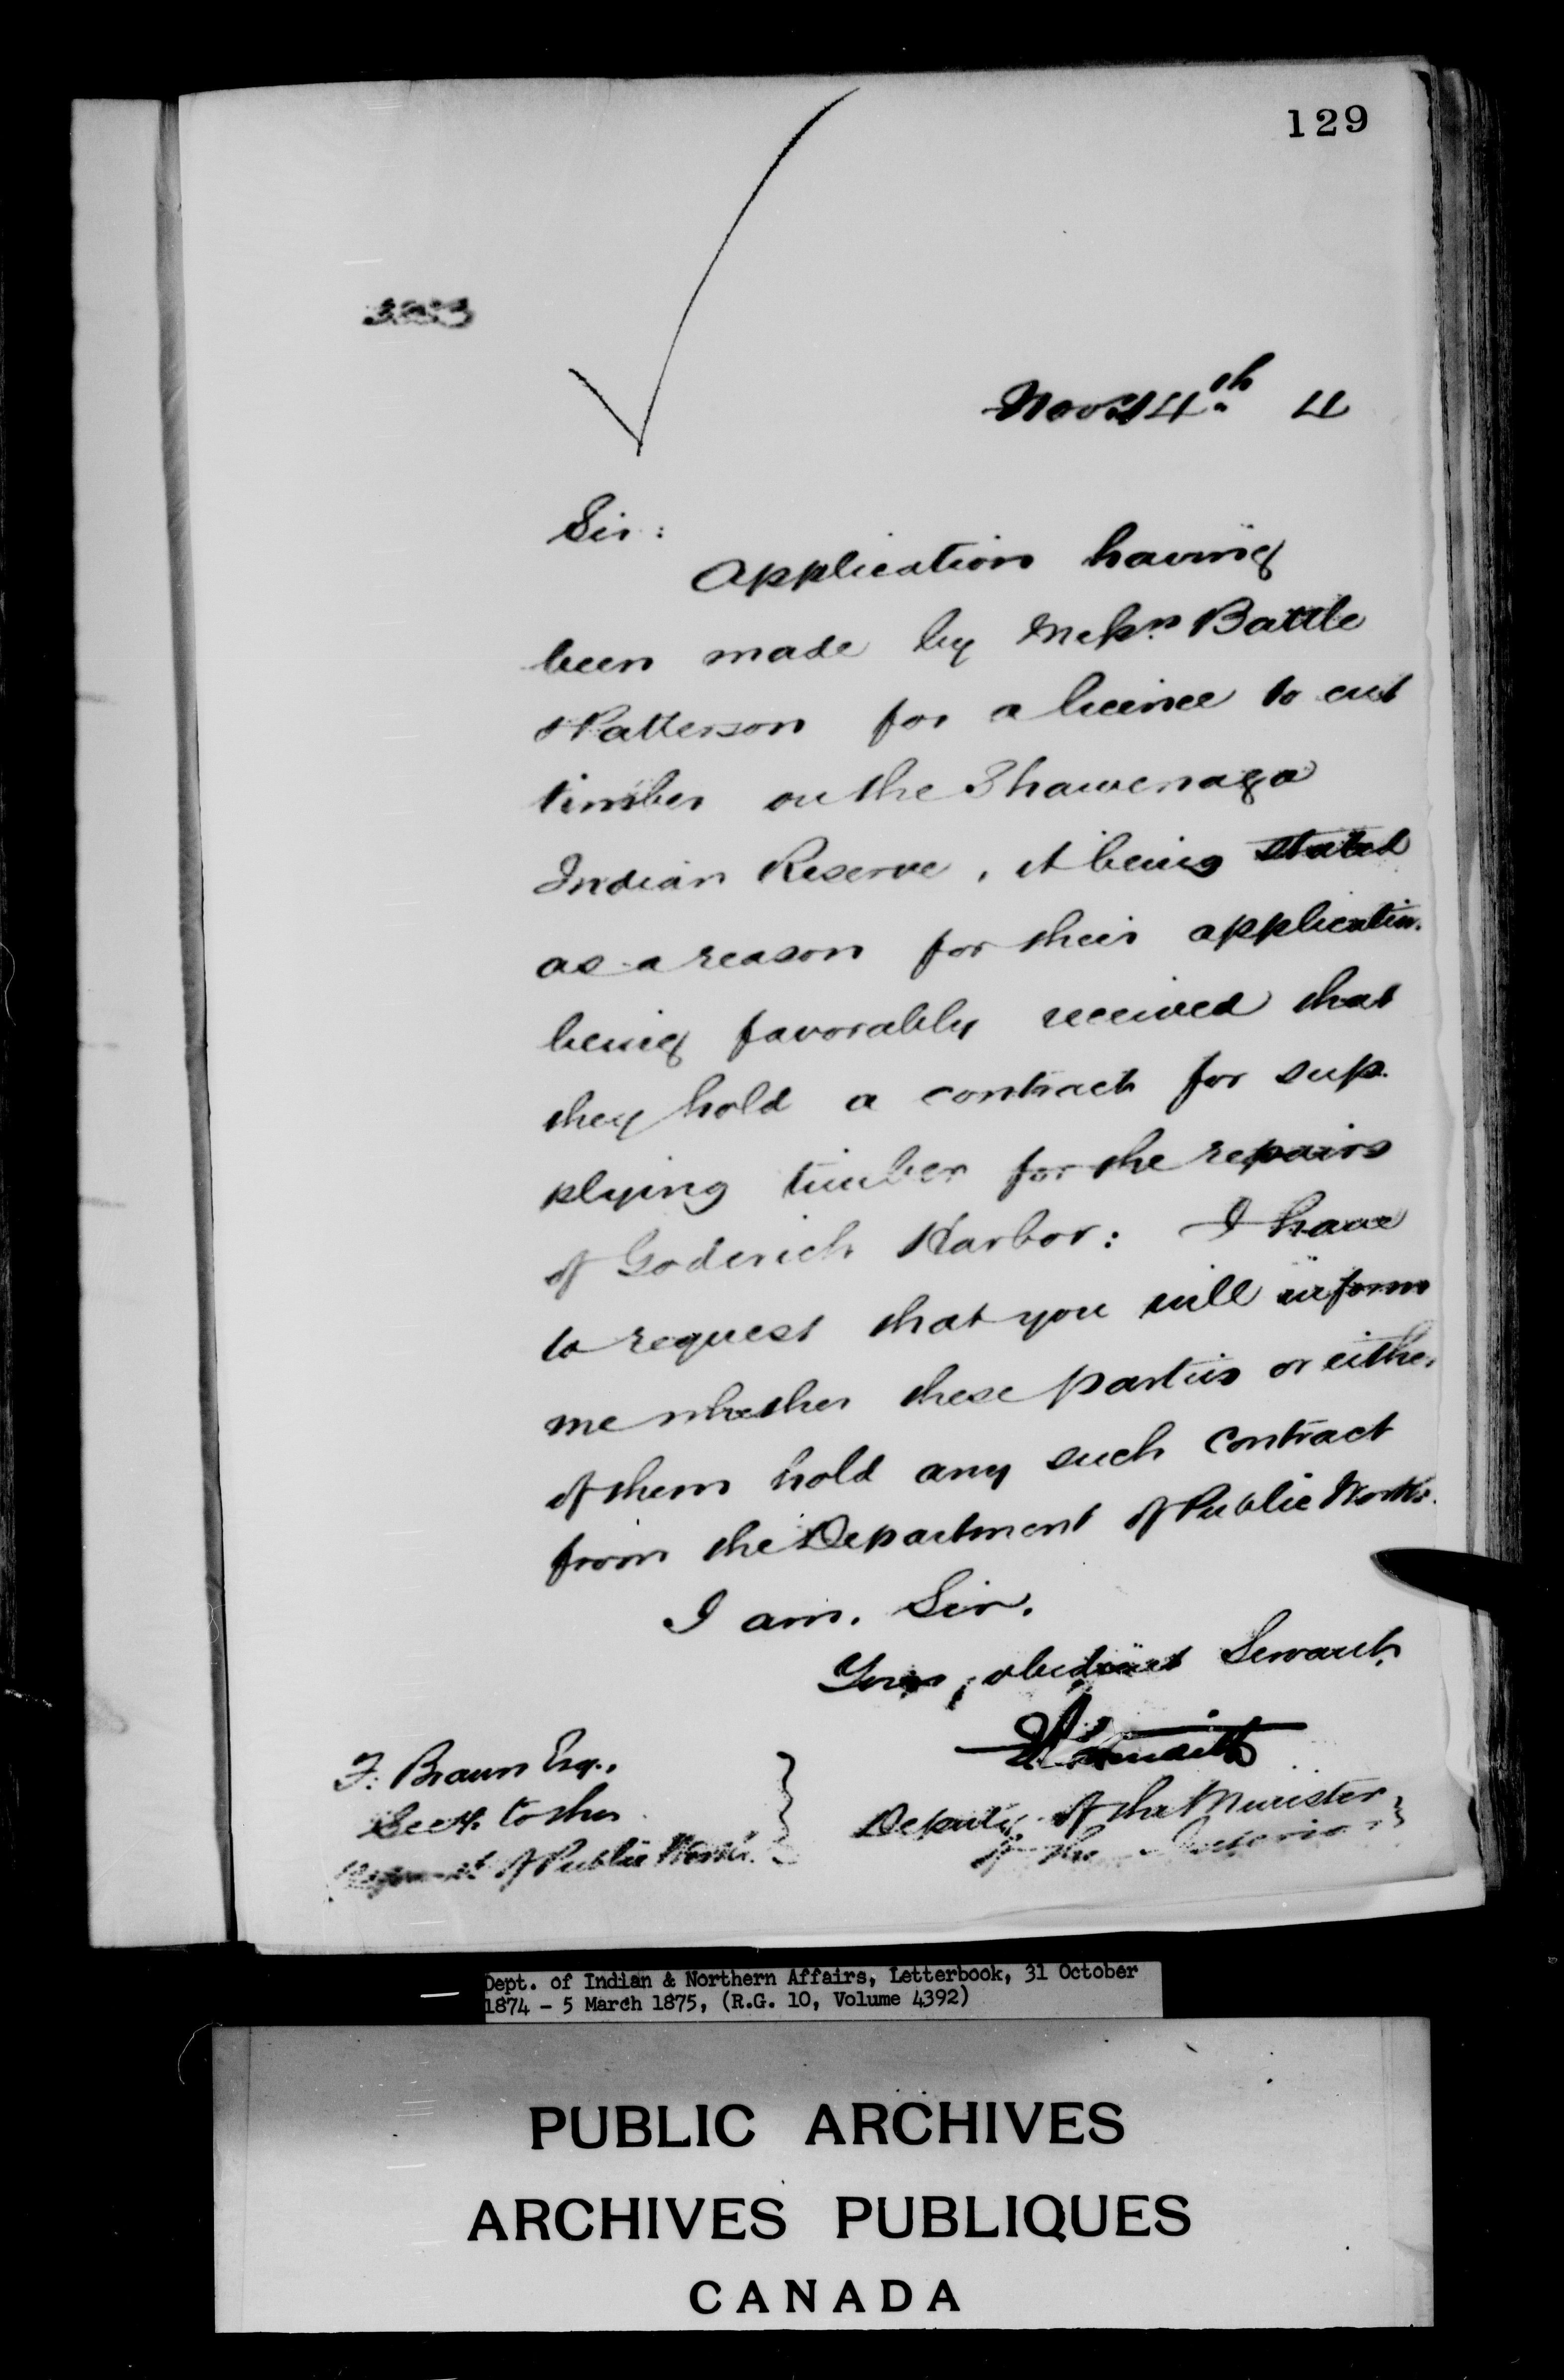 129
Nov 14th 4
Sir:
Application having
been made by Messrs Battle
& Patterson for a licence to cut
timber on the Shawenaga
Indian Reserve, it being stated
as a reason for their application
being favorably received that
they hold a contract for sup-
plying timber for the repairs
of Goderich Harbor: I have
to request that you will inform
me whether these parties or either
of them hold any such contract
from the Department of Public Works.
I am, Sir,
Your obedient Servant
F. Braun Esq.,
Secy. to the
of Public Works.
Deputy of the Minister
of the Interior
Dept. of Indian & Northern Affairs, Letterbook, 31 October
1874 - 5 March 1875, (R.G. 10, Volume 4392)
PUBLIC ARCHIVES
ARCHIVES PUBLIQUES
CANADA